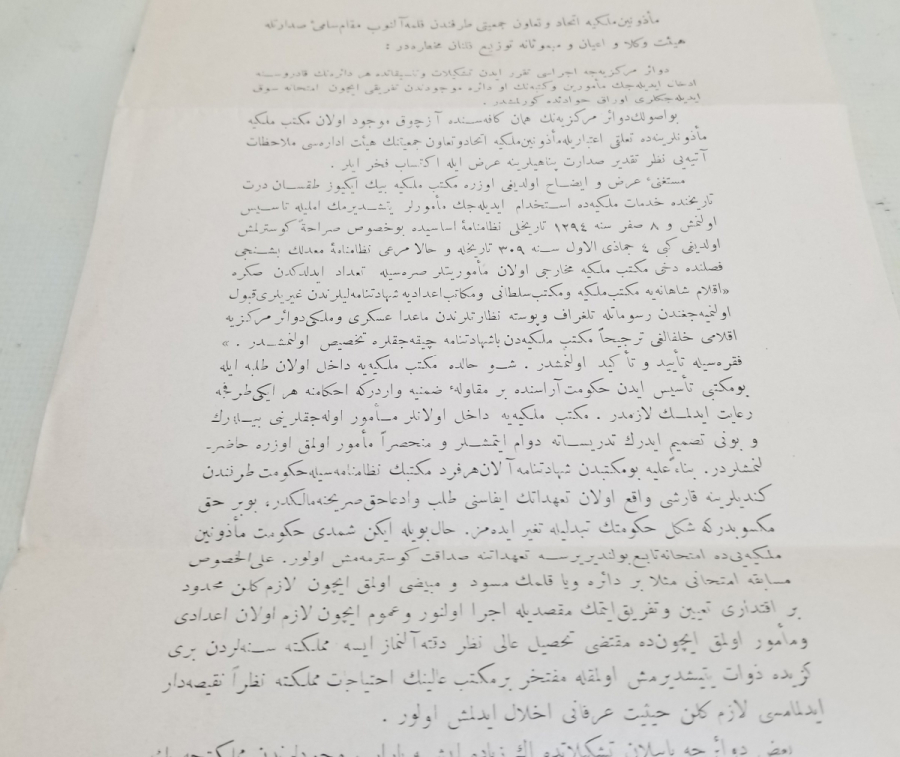 مأذونین ملکیه اتحاد و تعاون جمعیتی طرفندن قلمه آلنوب مقام سامیٔ صدارتله
هیئت وکلا و اعیان و مبعوثانه توزیع قلنان مخطره‌در :
دوائر مرکزیه‌جه اجراسی تقرر ایدن تشکیلات و تنسیقاتده هر دائره‌نك قادروسنه
ادخال ایدیله‌جك مأمورین و کتبه‌نك او دائره موجودندن تفریقی ایچون امتحانه سوق
ایدیله‌جکلری اوراق حوادثده کورلمشدر .
بو اصولك دوائر مرکزیه‌نك همان کافه‌سنده آز چوق موجود اولان مکتب ملکیه
مأذونلرینه‌ده تعلقی اعتباریله مأذونین ملکیه اتحاد و تعاون جمعیتنك هیئت اداره‌سی ملاحظات
آتیه‌یی نظر تقدیر صدارت پناهیلرینه عرض ایله اکتساب فخر ایلر .
مستغنیٔ عرض و ایضاح اولدیغی اوزره مکتب ملکیه بیك ایکیوز طقسان درت
تاریخنده خدمات ملکیه‌ده استخدام ایدیله‌جك مأمورلر یتشدیرمك املیله تأسیس
اولنمش و ۸ صفر سنه ۱۲۹٤ تاریخلی نظامنامهٔ اساسیده بو خصوص صراحةً کوسترلمش
اولدیغی کبی ٤ جماذی الاول سنه ۳۰۹ تاریخلی و حالا مرعی نظامنامهٔ معدلك بشنجی
فصلنده دخی مکتب ملکیه مخارجی اولان مأموریتلر صره‌سیله تعداد ایدلدکدن صکره
«اقلام شاهانه‌یه مکتب ملکیه و مکتب سلطانی و مکاتب اعدادیه شهادتنامه‌لیلرندن غیریلری قبول
اولنمیه‌جغندن رسوماتله تلغراف و پوسته نظارتلرندن ماعدا عسکری و ملکی دوائر مرکزیه
اقلامی خلفالغی ترجیحاً مکتب ملکیه‌دن با شهادتنامه چیقه‌جقلره تخصیص اولنمشدر . »
فقره‌سیله تأیید و تأکید اولنمشدر . شو حالده مکتب ملکیه‌یه داخل اولان طلبه ایله
بو مکتبی تأسیس ایدن حکومت آراسنده بر مقاولهٔ ضمنیه واردرکه احکامنه هر ایکی طرفجه
رعایت ایدلمك لازمدر . مکتب ملکیه‌یه داخل اولانلر مأمور اوله‌جقلرینی بیله‌رك
و بونی تصمیم ایدرك تدریساته دوام ایتمشلر و منحصراً مأمور اولمق اوزره حاضر-
لنمشلردر . بناءً علیه بو مکتبدن شهادتنامه آلان هر فرد مکتبك نظامنامه‌سیله حکومت طرفندن
کندیلرینه قارشی واقع اولان تعهداتك ایفاسنی طلب و ادعا حق صریحنه مالکدر . بو بر حق
مکسوبدرکه شکل حکومتك تبدلیله تغیر ایده‌مز . حال بویله ایکن شمدی حکومت مأذونین
ملکیه‌یی‌ده امتحانه تابع بولندیریرسه تعهداتنه صداقت کوسترمه‌مش اولور . علی الخصوص
مسابقه امتحانی مثلا بر دائره ویا قلمك مسود و مبیضی اولمق ایچون لازم کلن محدود
بر اقتداری تعیین و تفریق ایتمك مقصدیله اجرا اولنور و عموم ایچون لازم اولان اعدادی
و مأمور اولمق ایچون‌ده مقتضی تحصیل عالی نظر دقته آلنماز ایسه مملکته سنه‌لردن بری
کزیده ذوات یتیشدیرمش اولمقله مفتخر بر مکتب عالینك احتیاجات مملکته نظراً نقیصه‌دار
ایدلمامسی لازم کلن حیثیت عرفانی اخلال ایدلمش اولور .